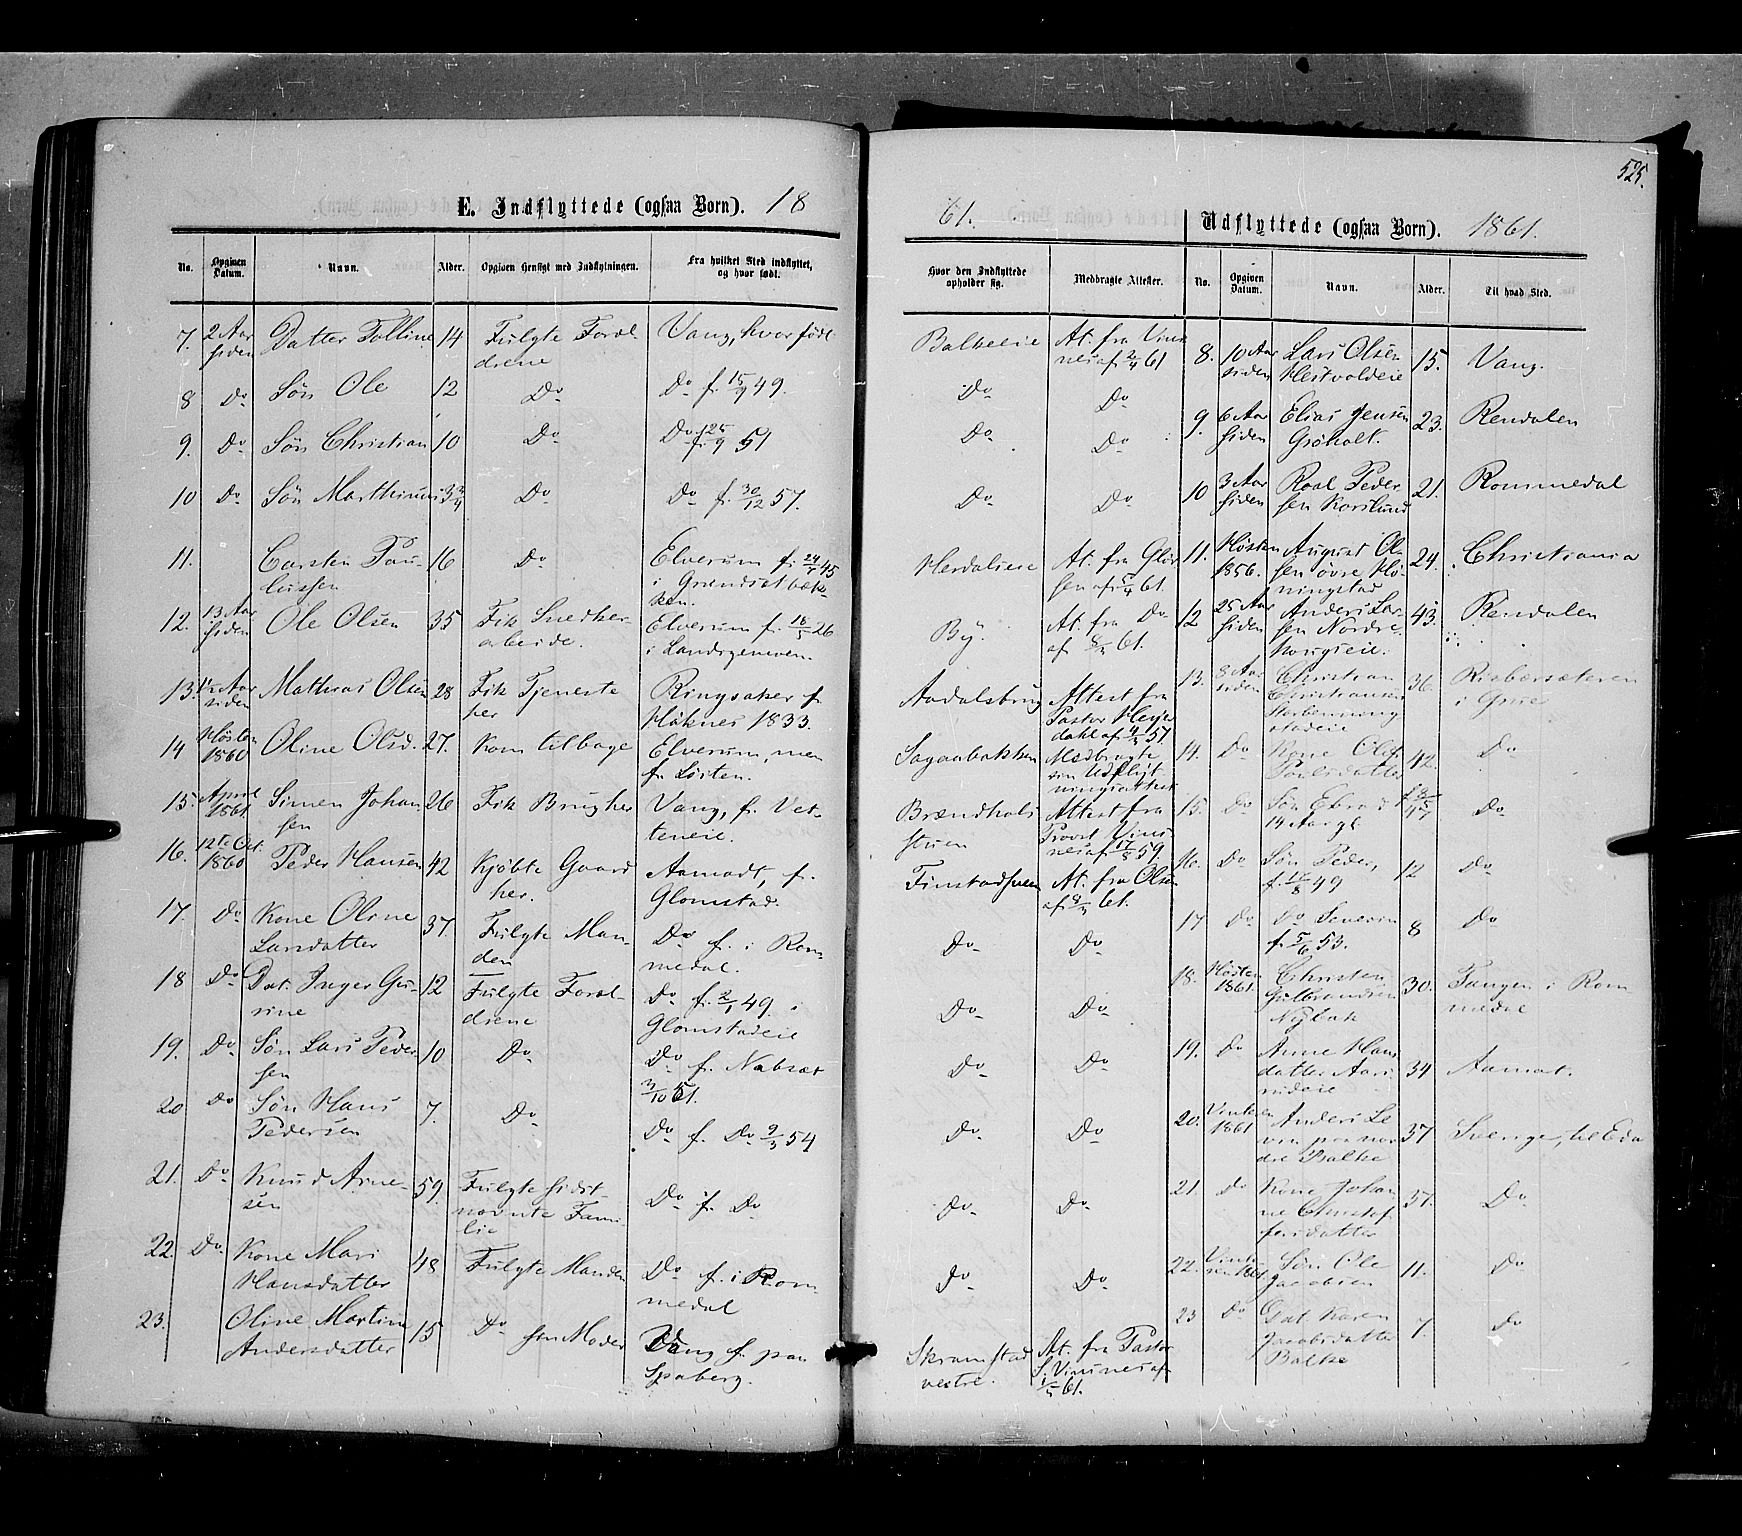 525.
E. Indflyttede (ogsaa Born). 18
61.
Udflyttede (ogsaa Born). 1861.
No. | Opgiven Datum. | Navn. | Alder. | Opgiven Hensigt med Indflytningen. | Fra hvilket Sted indflyttet, og hvor født. | Hvor den Indflyttede opholder sig. | Medbragte Attester.
7. | 2 Aar siden | Datter Polline | 14 | Fulgte Foræl-drene | Vang, hvor født | Balkeeie | At. fra Vins nes af 2/4 61
8 | Do | Søn Ole | 12 | Do | Do f. 15/9 49. | Do | Do
9. | Do | Søn Christian | 10 | Do | Do f. 25/9 51 | Do | Do
10 | Do | Søn Marthinus | 3 3/4 | Do | Do f. 30/12 57. | Do | Do
11. | Carsten Pau-lussen | 16 | Do | Elverum f. 45 i Grundsetbæk-ken. | Herdalseie | At. fra Glør sen af 61.
12. | 13 Aar siden | Ole Olsen | 35 | Fik Snedker-arbeide. | Elverum f. 18/5 26 i | By. | At. fra Do af 61.
13. | 1½ Aar siden | Mathias Olsen | 28 | Fik Tjeneste her | Ringsaker f. 1833. | Aadalsbrug | Attest fra Pastor Heyer dahl af 57.
14 | Høsten 1860 | Oline Olsd. | 27. | Kom tilbage | Elverum, men f. Løiten. | Sagaabakken | Medbragte sin Udflyt-ningsattest
15. | April 1861 | Simen Johan sen | 26 | Fik Brug her | Vang, f. Vet-teneie. | Brændhols stuen | Attest fra Provst Vins nes af 17/8 59.
16. | 12te Oct. 1860 | Peder Hansen | 42 | Kjøbte Gaard her. | Aamodt, f. Glomstad. | Finstadsveen | At. fra Olsen af 61.
17. | Do | Kone Oline Larsdatter | 37. | Fulgte Man-den | Do f. i Rom-medal. | Do | Do
18 | Do | Dat. Inger Gu-rine | 12 | Fulgte Foræl-drene | Do f. 2/1 49. i Glomstadeie | Do | Do
19. | Do | Søn Lars Peder sen | 10 | Do | Do f. Nabset 3/10 51. | Do | Do
20 | Do | Søn Hans Pedersen | 7. | Do | Do f. Do 9/3 54 | Do | Do
21. | Do | Knud Arne-sen | 59. | Fulgte sidst-nævnte Fami lie | Do f. Do | Do | Do
22. | Do | Kone Mari Hansdatter | 48 | Fulgte Manden | Do f. i Rom medal | Do | Do
23. | Oline Martine Andersdatter | 15 | Do sin Moder | Vang f. paa Spaberg. | Skramstad vestre. | At. fra Pastor S. Vinsnes af 1/5 61.
No. | Opgiven Datum. | Navn. | Alder. | Til hvad Sted.
8. | 10 Aar siden | Lars Olsen Hestvoldeie | 15. | Vang.
9. | 6 Aar siden | Elias Jensen Grøholt. | 23. | Rendalen
10 | 3 Aar siden | Roal Peder-sen Korslund | 21. | Rommedal
11. | Høsten 1856. | August Ol-sen øvre Hø-ningstad | 24. | Christiania
12 | 25 Aar siden | Anders Lar-sen Nordre | 43. | Rendalen
13. | 8 Aar siden | Christian Christiansen | 36. | Risbersæteren i Grue
14. | Do | Kone Oleá Poulsdatter | 42. | Do
15. | Do | Søn 14 Aar gl. | Do
16. | Do | Søn Peder, f. 8 49 | 12 | Do
17 | Do | Do Severin f. 5/6 53. | 8 | Do
18. | Høsten 1861 | Christen Gulbrandsen Nybak | 30. | Tangen i Rom medal
19. | Do | Anne Hans datter | 34 | Aamot.
20. | Vinteren 1861 | Anders La paa nor dre Balke | 37 | Sverige, til Eda
21. | Do | Kone Johan ne Christof fersdatter | 37. | Do
22. | Vinte ren 1861 | Søn Ole Jacobsen | 11. | Do
23 | Do | Dat. Karen Jacobsdatter Balke | 7. | Do